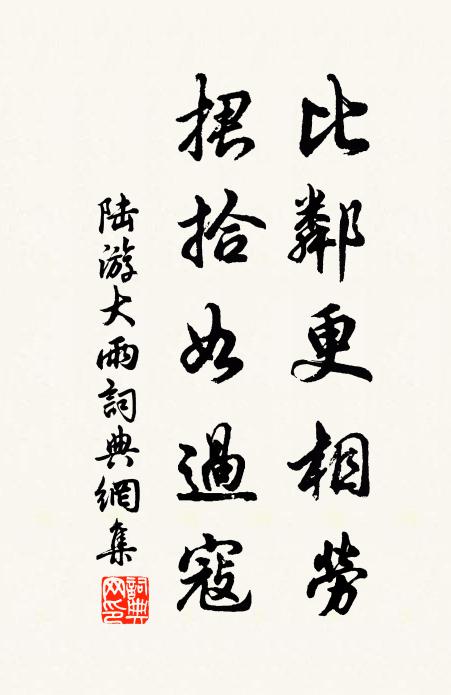 比鄰更相勞
捃拾如過寇
陸游大雨詞典網集
詞典网印